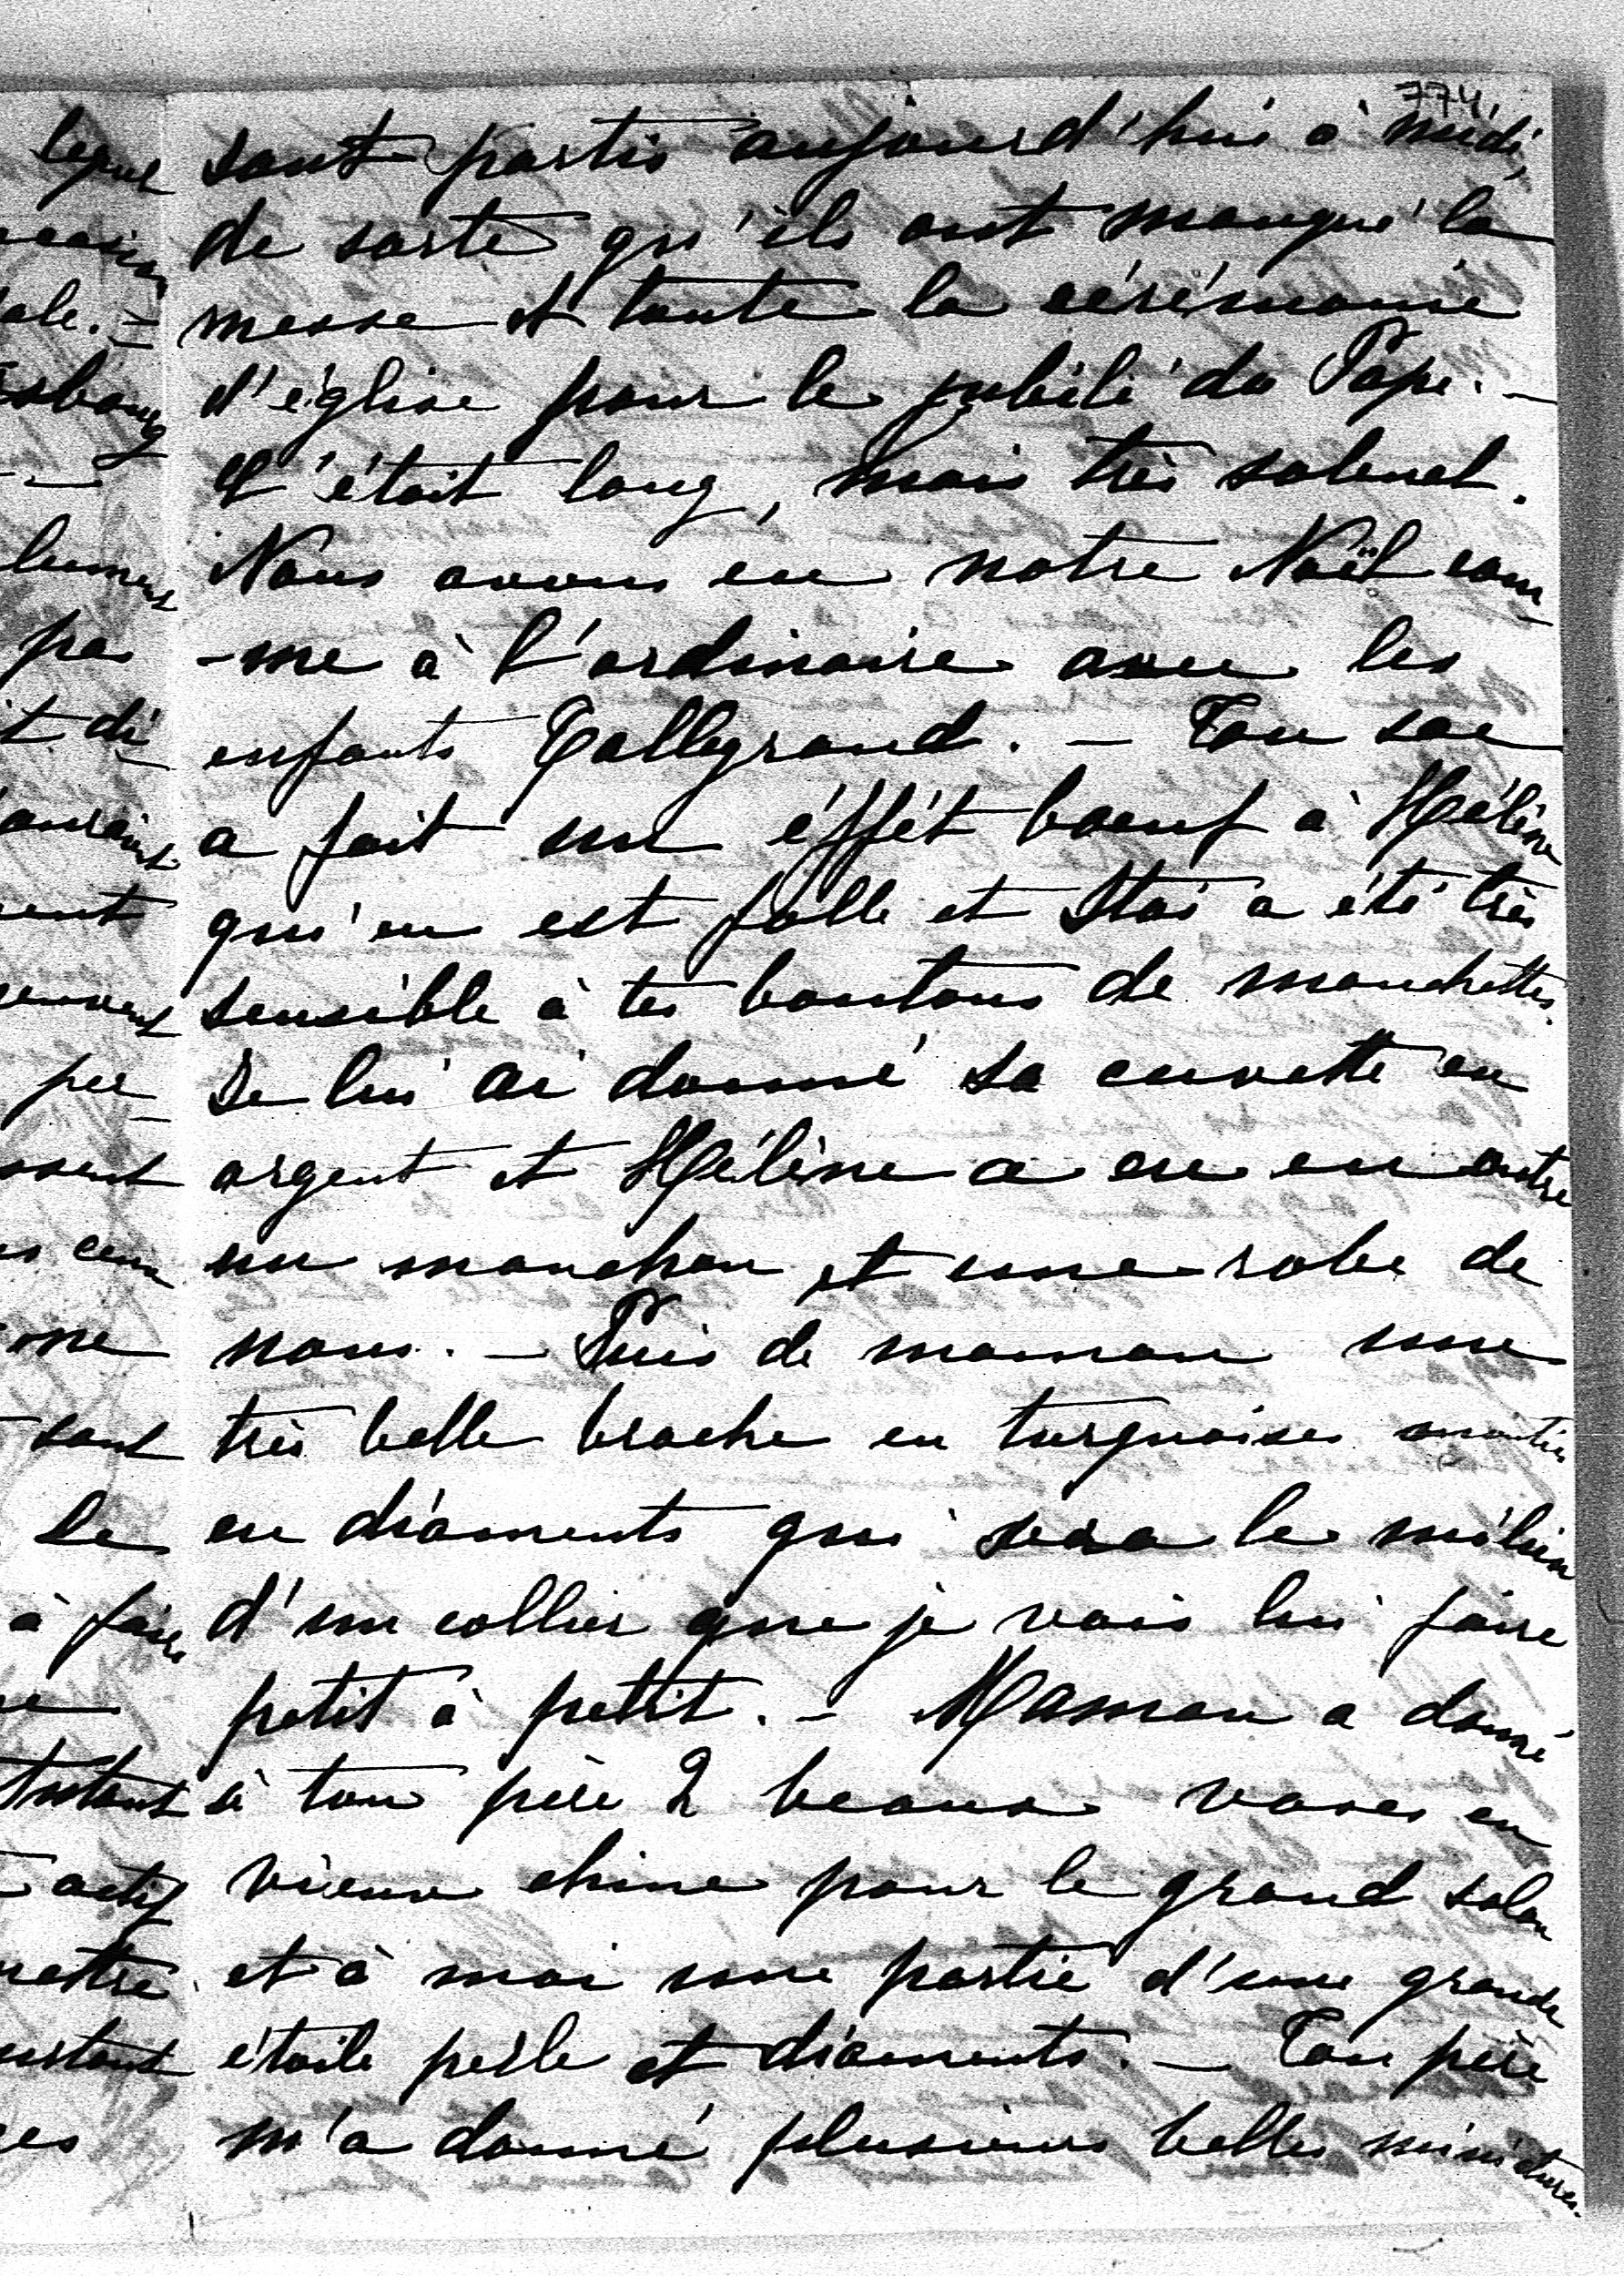 774,
sont partis aujourd'hui à midi,
de sorte qu'ils ont manqué la
messe et toute la cérémonie
d'église pour le jubilé du Pape. –
C'était long, mais très solenel.
Nous avons eu notre Noël com
-me à l'ordinaire avec les
enfants Talleyrand. – Ton sac
a fait un éffét boeuf à Hélène
qui en est folle et Stas a été très
sensible à tes boutons de manchettes.
Je lui ai donné sa cuvette en
argent et Hélène a eu en outre
un manchon et une robe de
nous. – Puis de maman une
très belle broche en turquoises montées
en diaments qui sera le milieu
d'un collier que je vais lui faire
petit à petit. – Maman a donné
à ton père 2 beaux vases en
vieux chine pour le grand salon
et à moi une partie d'une grande
étoile perle et diaments. – Ton père
m'a donné plusieurs belles miniatures.